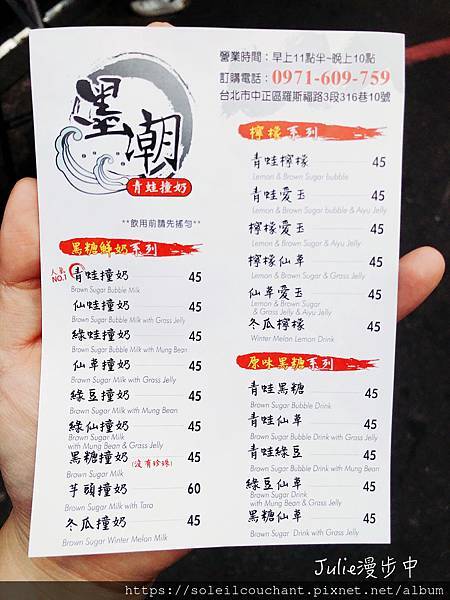 墨潮
青蛙撞奶
**飲用前請先搖勻**
營業時間：早上11點半~晚上10點
訂購電話：0971-609-759
台北市中正區羅斯福路3段316巷10號
黑糖鮮奶系列
人氣NO.1
青蛙撞奶 45
Brown Sugar Bubble Milk
仙蛙撞奶 45
Brown Sugar Bubble Milk with Grass Jelly
綠蛙撞奶 45
Brown Sugar Bubble Milk with Mung Bean
仙草撞奶 45
Brown Sugar Milk with Grass Jelly
綠豆撞奶 45
Brown Sugar Milk with Mung Bean
綠仙撞奶 45
Brown Sugar Milk
with Mung Bean & Grass Jelly
黑糖撞奶(沒有珍珠) 45
Brown Sugar Milk
芋頭撞奶 60
Brown Sugar Milk with Tara
冬瓜撞奶 45
Brown Sugar Winter Melon Milk
檸檬系列
青蛙檸檬 45
Lemon & Brown Sugar bubble
青蛙愛玉 45
Lemon & Brown Sugar bubble & Aiyu Jelly
檸檬愛玉 45
Lemon & Brown Sugar & Aiyu Jelly
檸檬仙草 45
Lemon & Brown Sugar & Grass Jelly
仙草愛玉 45
Lemon & Brown Sugar
& Grass Jelly & Aiyu Jelly
冬瓜檸檬 45
Winter Melon Lemon Drink
原味黑糖系列
青蛙黑糖 45
Brown Sugar Bubble Drink
青蛙仙草 45
Brown Sugar Bubble Drink with Grass Jelly
青蛙綠豆 45
Brown Sugar Bubble Drink with Mung Bean
綠豆仙草 45
Brown Sugar Drink
with Mung Bean & Grass Jelly
黑糖仙草 45
Brown Sugar Drink with Grass Jelly
Julie漫步中
https://soleilcouchant.pixnet.net/album